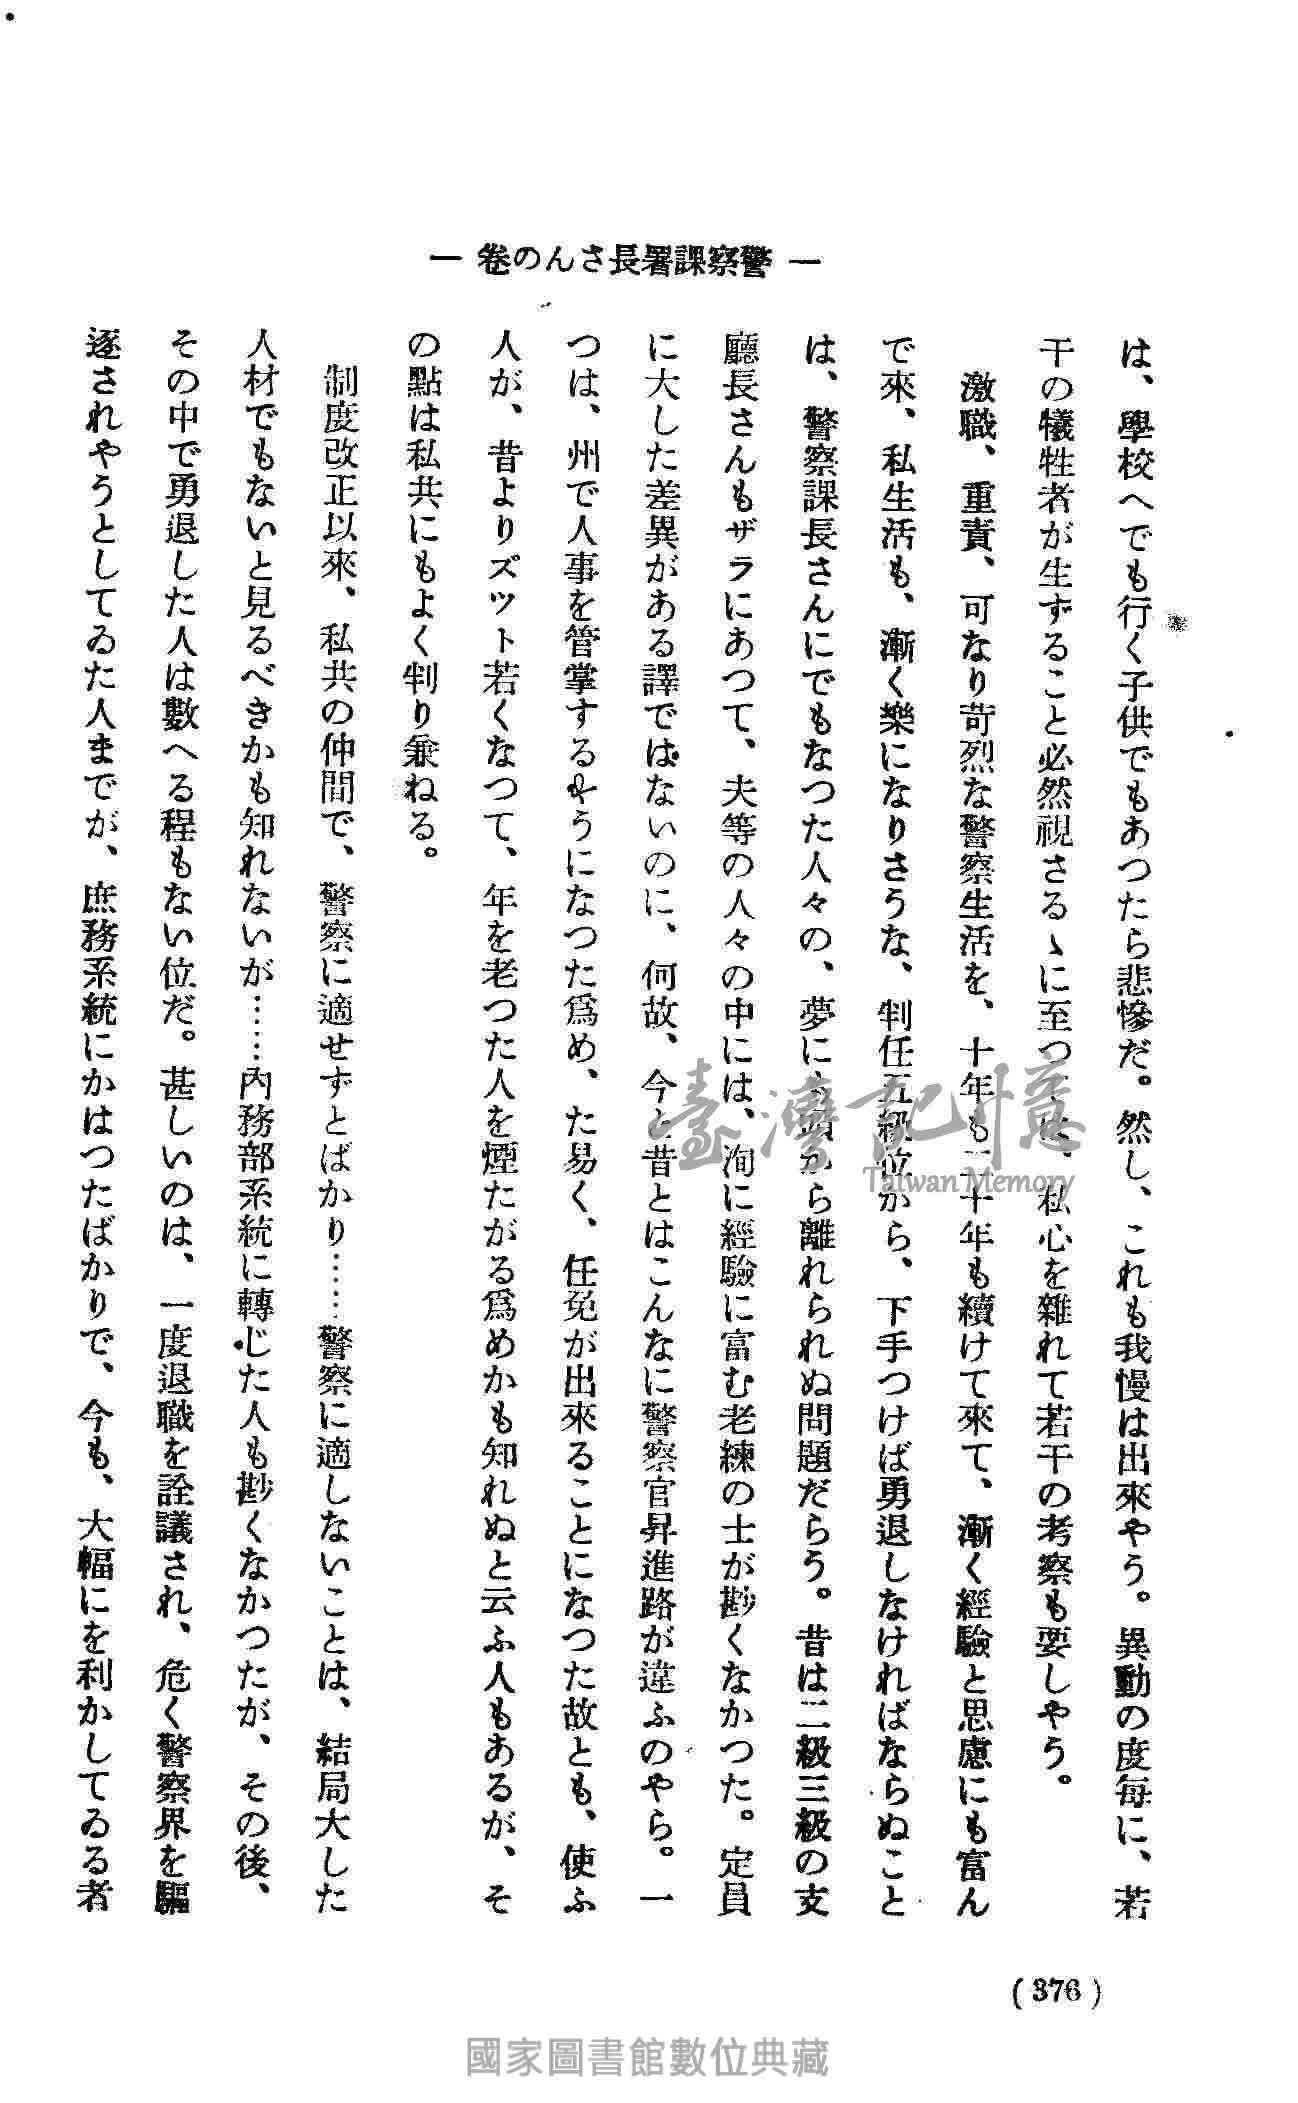 ― 警察課署長さんの卷 ―
は、學校へでも行く子供でもあつたら悲慘だ。然し、これも我慢は出來やう。異動の度每に、若
干の犧牲者が生ずること必然視さるゝに至つては、私心を雜れて若干の考察も要しやう。
激職、重責、可なり苛烈な警察生活を、十年も二十年も續けて來て、漸く經驗と思慮にも富ん
で來、私生活も、漸く樂になりさうな、判任五級位から、下手つけば勇退しなければならぬこと
は、警察課長さんにでもなつた人々の、夢にも頭から離れられぬ問題だらう。昔は二級三級の支
廳長さんもザラにあつて、夫等の人々の中には、洵に經驗に富む老練の士が尠くなかつた。定員
に大した差異がある譯ではないのに、何故、今と昔とはこんなに警察官昇進路が違ふのやら。一
つは、州で人事を管掌するやうになつた爲め、た易く、任免が出來ることになつた故とも、使ふ
人が、昔よりズツト若くなつて、年を老つた人を煙たがる爲めかも知れぬと云ふ人もあるが、そ
の點は私共にもよく判り兼ねる。
制度改正以來、私共の仲間で、警察に適せずとばかり……警察に適しないことは、結局大した
人材でもないと見るべきかも知れないが……內務部系統に轉じた人も尠くなかつたが、その後、
その中で勇退した人は數へる程もない位だ。甚しいのは、一度退職を詮議され、危く警察界を驅
逐されやうとしてゐた人までが、庶務系統にかはつたばかりで、今も、大幅にを利かしてゐる者
(376)
臺灣記憶
Taiwan Memory
國家圖書館數位典藏